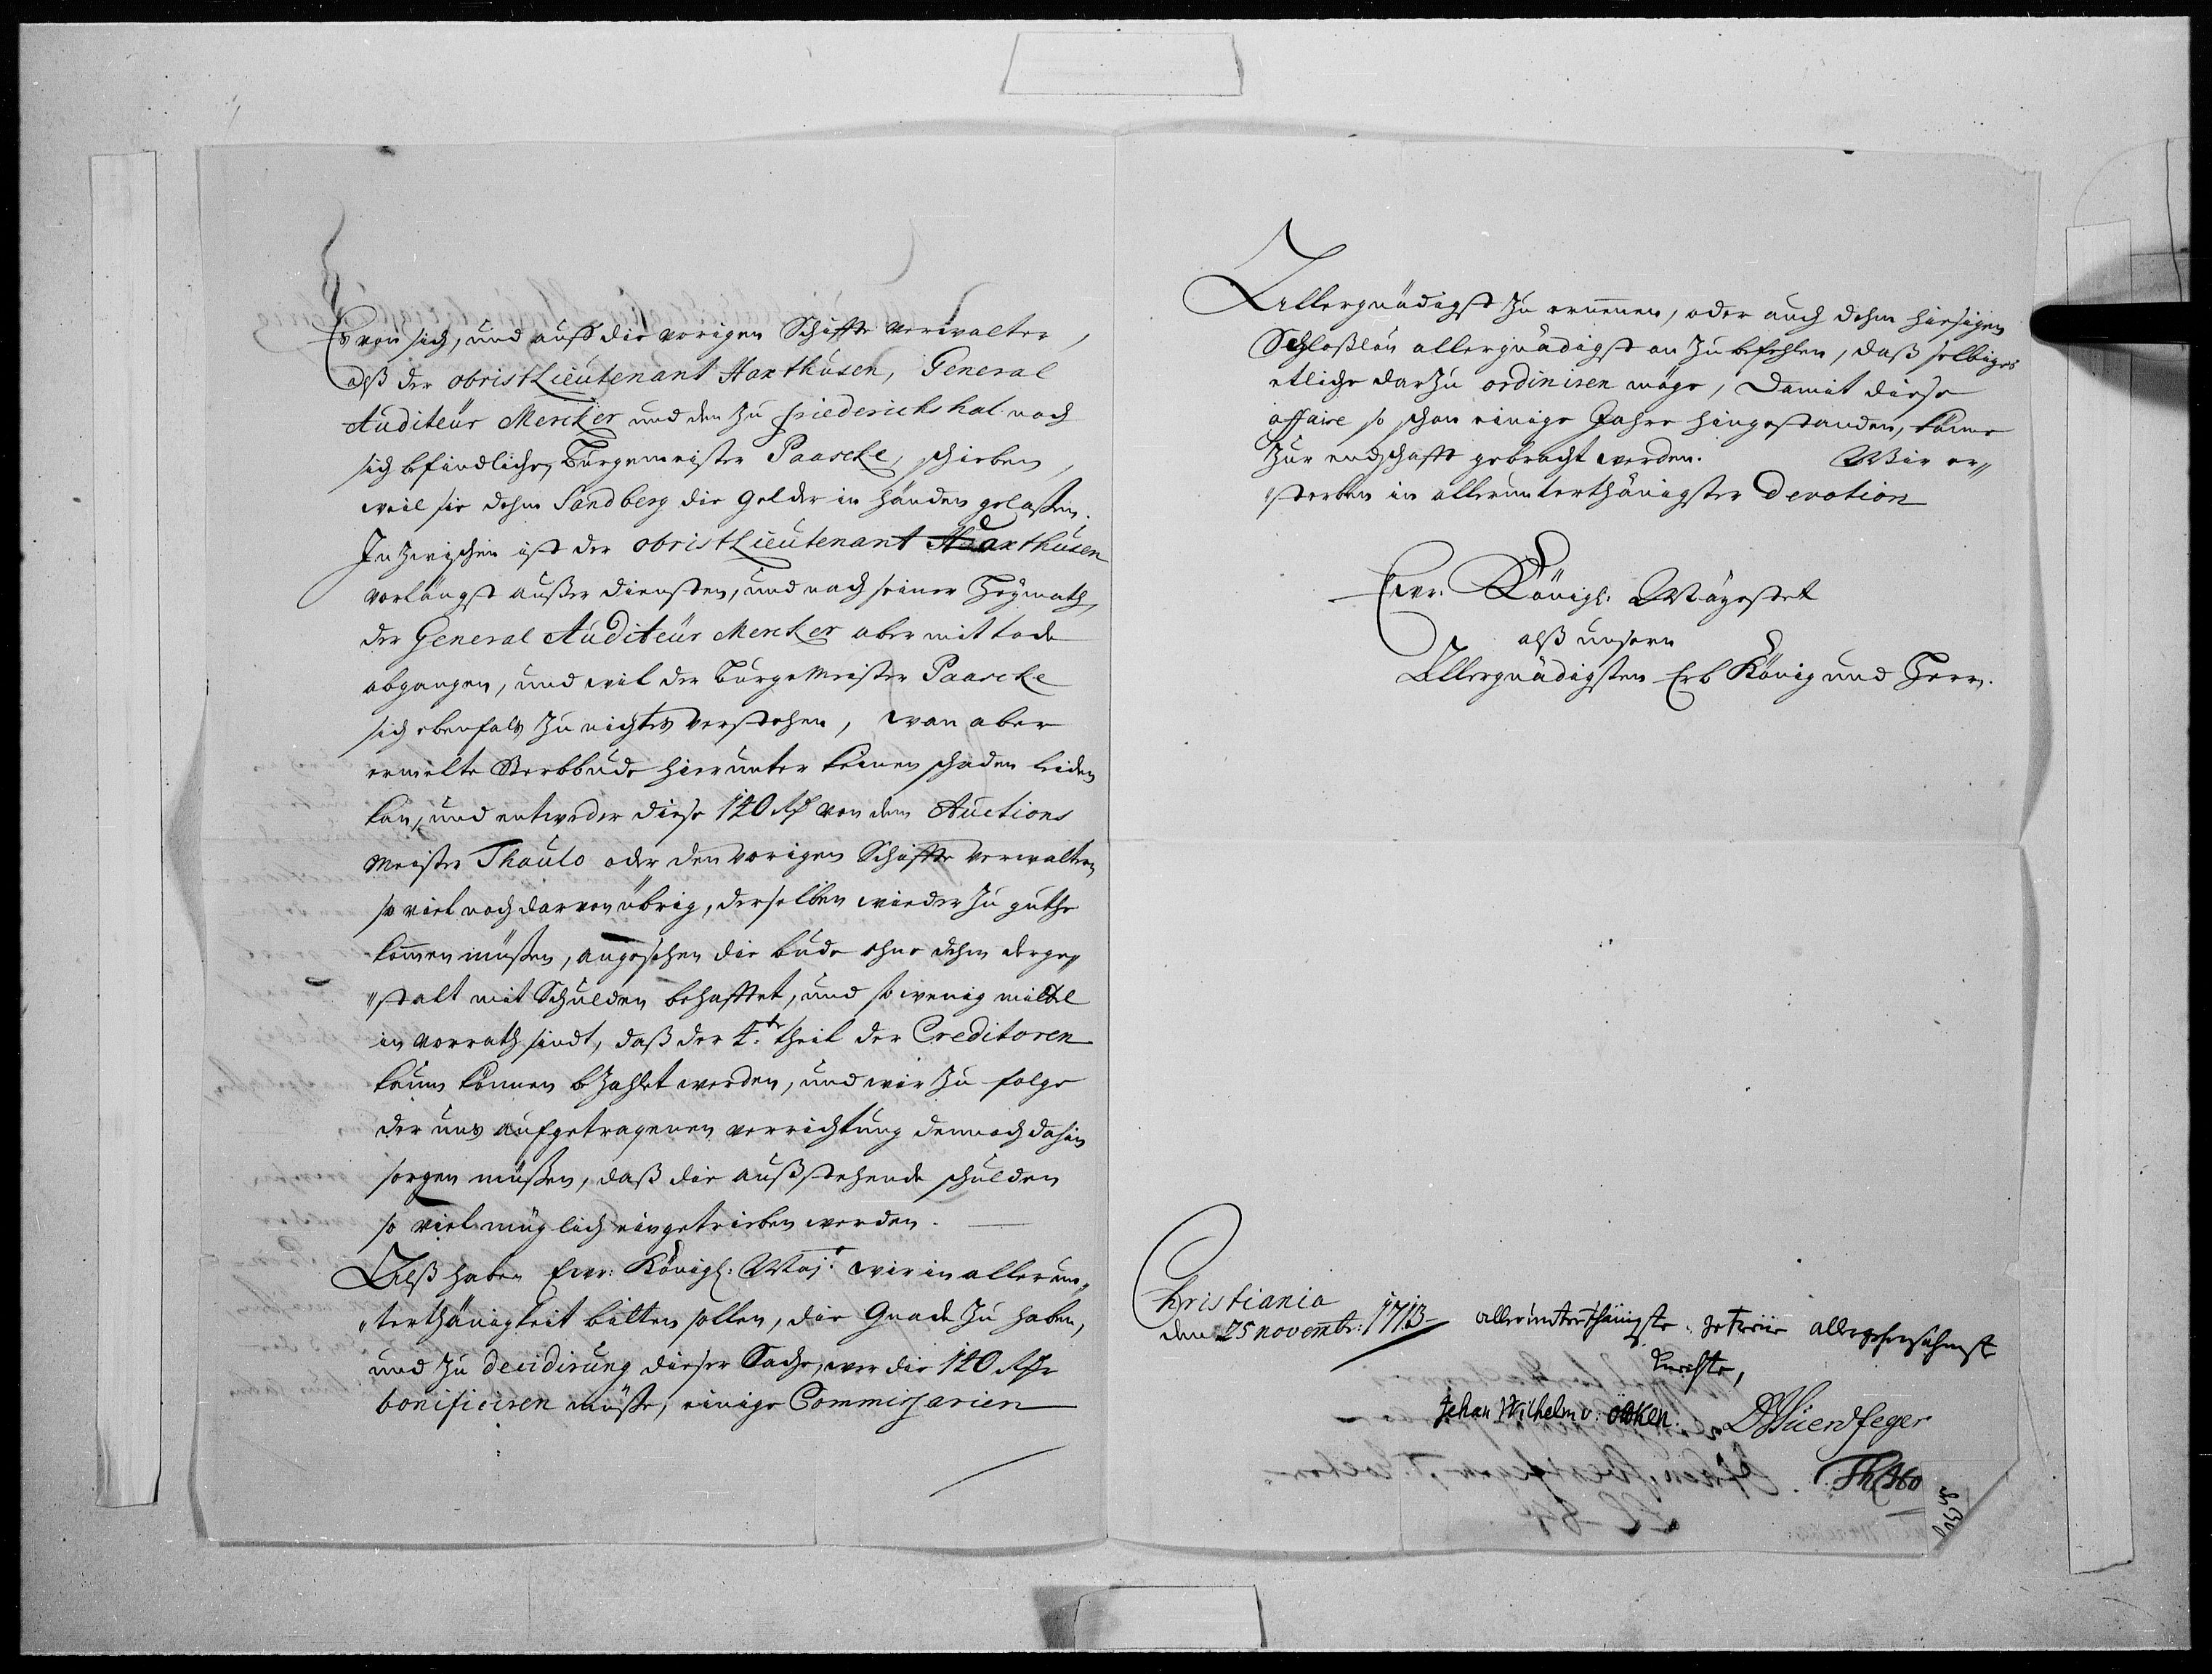 Es von sich, und auff die vorigen Schiffts verwalter,
alß der obristLieutenant Haxthusen, General
Auditeur Mercker und den zu friederichshal noch
sich befindlichen Bürgemeister Paascke, schieben,
weil sie dehm Sandberg die gelder in händen gelaßen.
Inzwischen ist der obristLieutenant Haxthusen
vorlängst außer diensten, und nach seiner Heymath,
der General Auditeur Mercker aber mit tode
abgangen, und will der Bürgemeister Paascke
sich ebenfals zu nichtes verstehen, wan aber
ermelte Sterbbude hierunter keinen schaden leiden
kan, und entweder diese 140 Rthl von dem Auctions
Meister Thaulo oder den vorigen Schiffts verwaltern
so viel noch darvon übrig, derselben wieder zu guthe
kommen müßen, angesehen die bude ohne dehm derge„
„stalt mit Schulden behafftet, und so wenig mittel
in vorrath sindt, daß der 4te theil der Creditoren
kaum können bezahlet werden, und wir zu folge
der uns aufgetragenen verrichtung dennoch dahin
sorgen müßen, daß die außstehende schulden
so viel müglich eingetrieben werden.
Alß haben Ewr: Königl: Maj: wir in allerun„
„terthänigkeit bitten sollen, die Gnade zu haben,
und zu decidirung dieser Sache, wer die 140 Rthlr
bonificiren müße, einige Commissarien
Allergnädigst zu ernennen, oder auch dehm hiesigen
Schloßlau allergnädigst an zu befehlen, daß selbiges
etliche darzu ordiniren möge, damit diese
affaire so schon einige Jahre hingestanden, könne
zur endschafft gebracht werden. Wir er„
„sterben in alleruntertähnigster Devotion
Ewr: Königl: Mayestet
alß unsern
Allergnädigsten Erb König und Herrn.
Christiania
den 25 novembr: 1713
alleruntertähnigste getreüe allergehorsahmste
Knechte,
Johan Wilhelm v: öttken. Süerdfeger